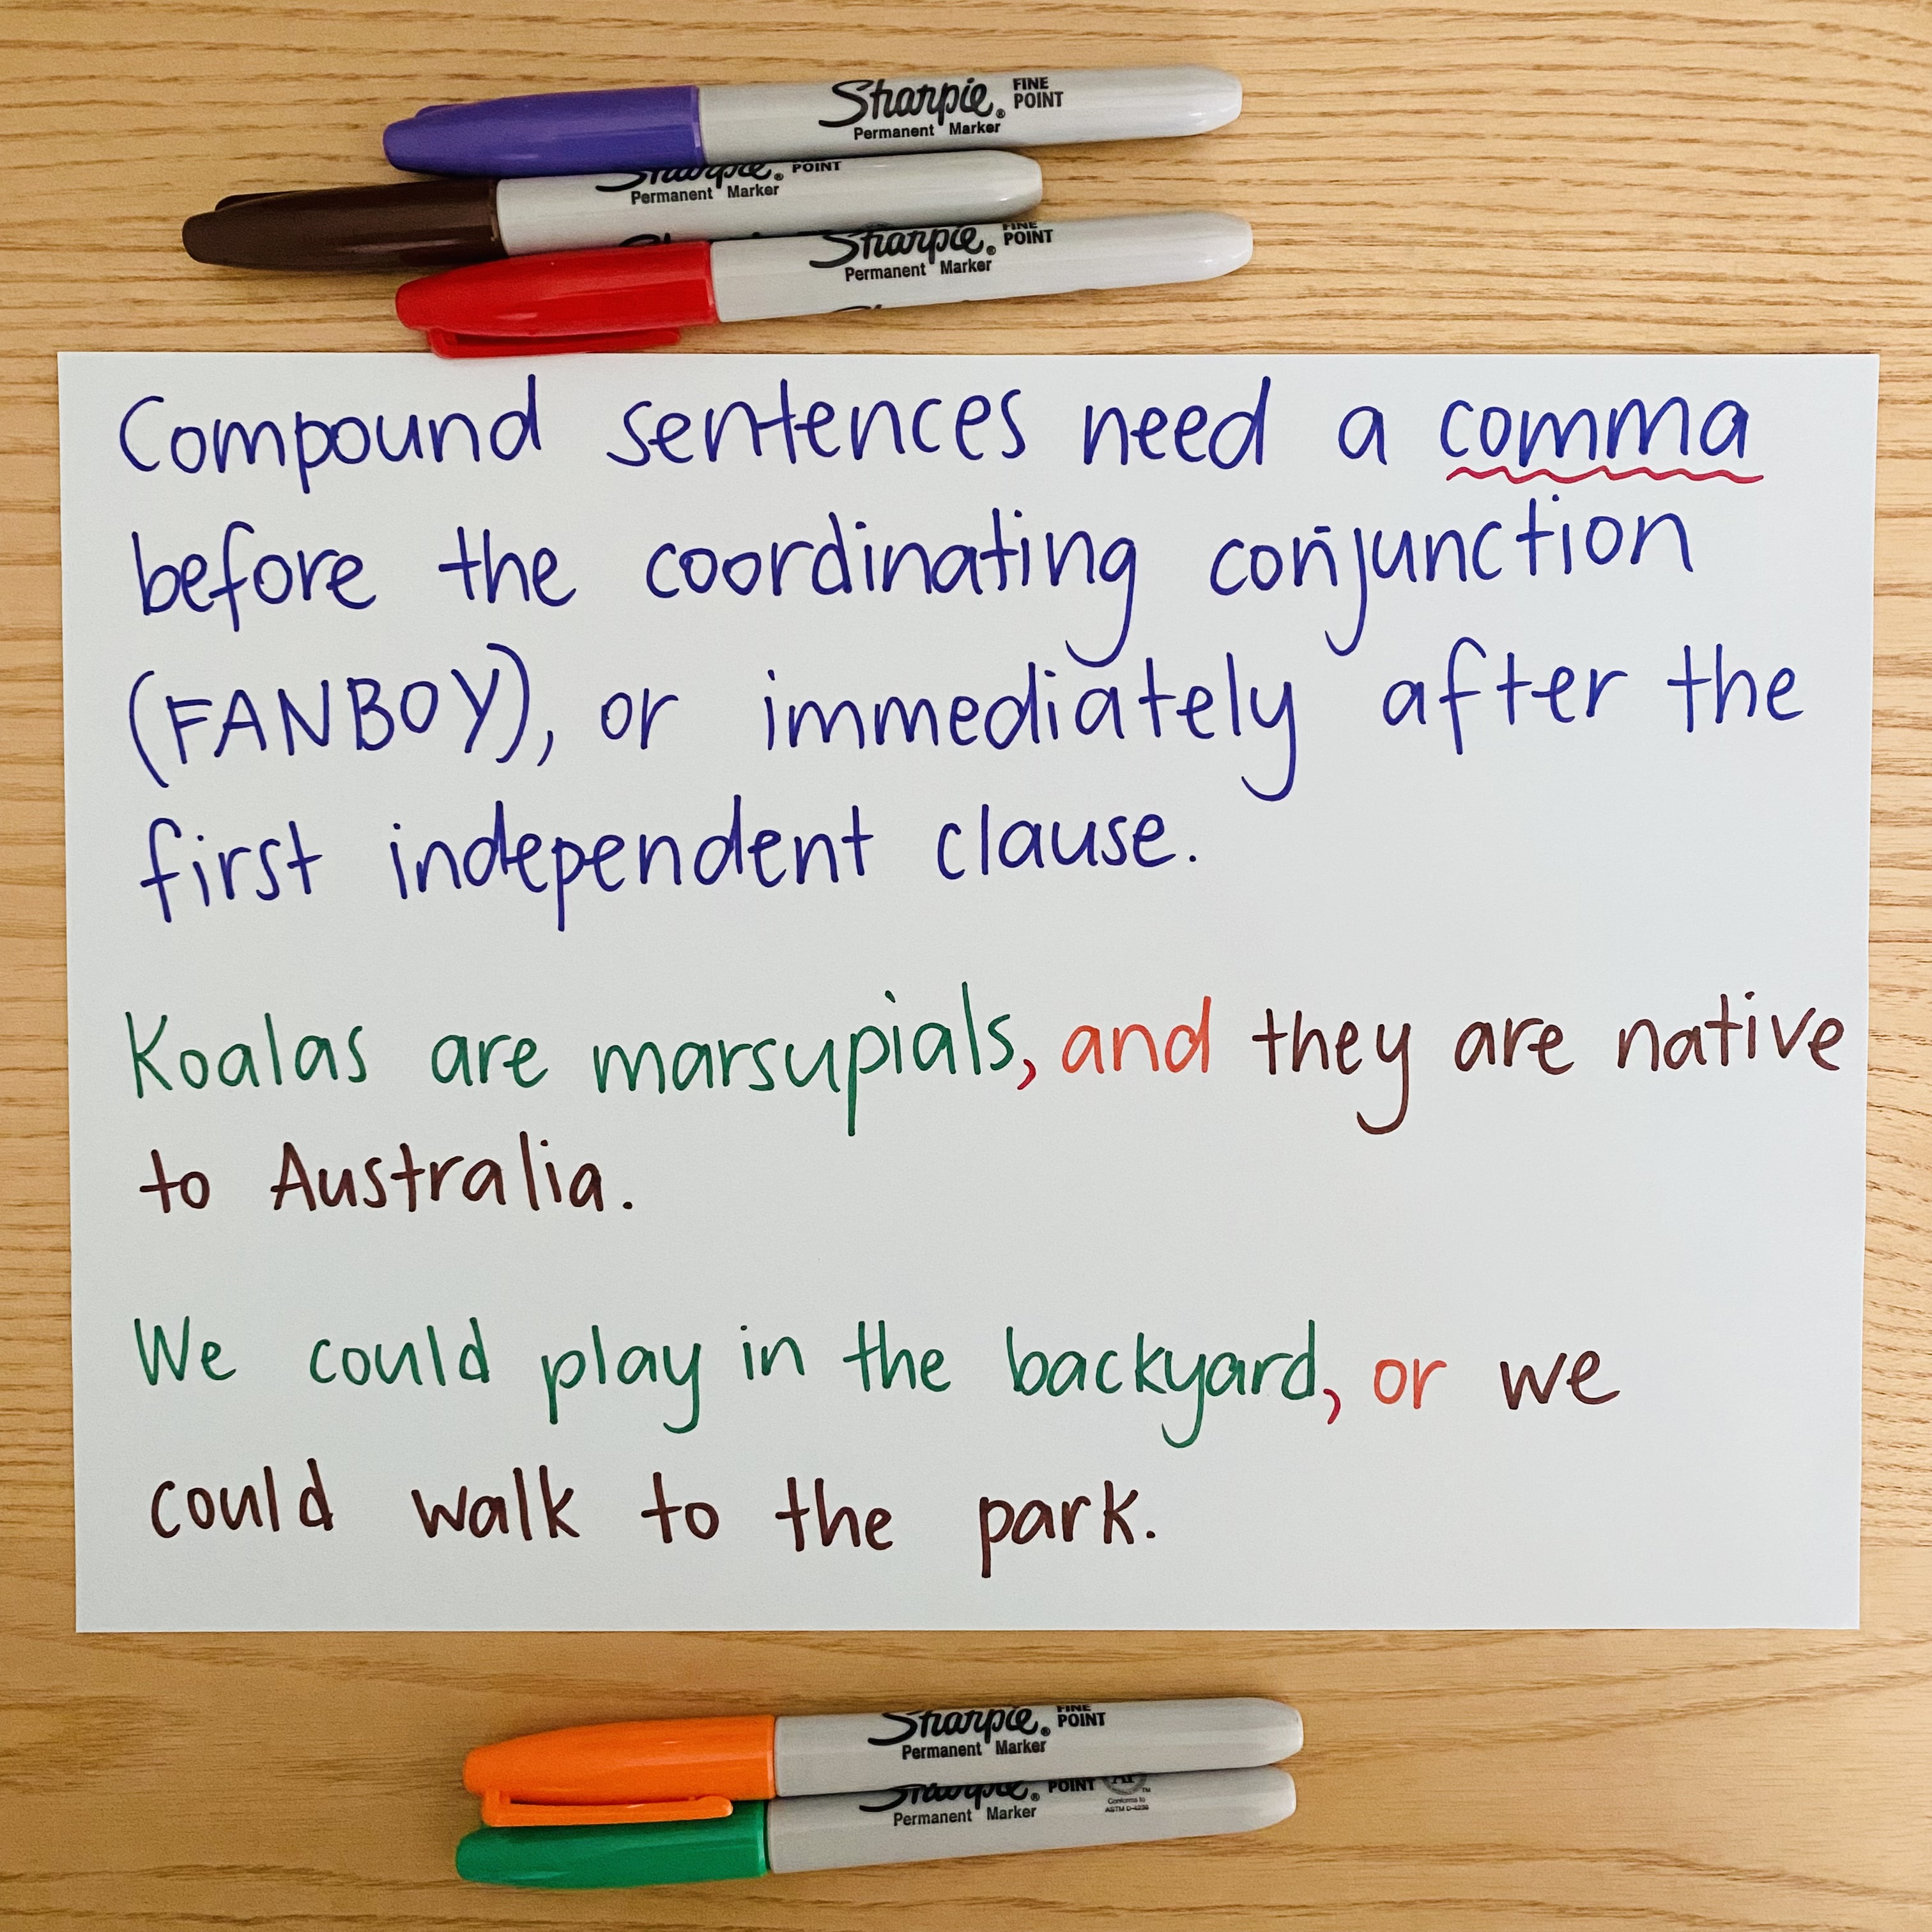 Sharpie® FINE POINT
Permanent Marker
Sharpie® POINT
Permanent Marker
Sharpie® FINE POINT
Permanent Marker
Compound sentences need a comma
before the coordinating conjunction
(FANBOY), or immediately after the
first independent clause.
Koalas are marsupials, and they are native
to Australia.
We could play in the backyard, or we
could walk to the park.
Sharpie® FINE POINT
Permanent Marker
Sharpie® POINT AP™
Permanent Marker Conforms to
ASTM D-4236